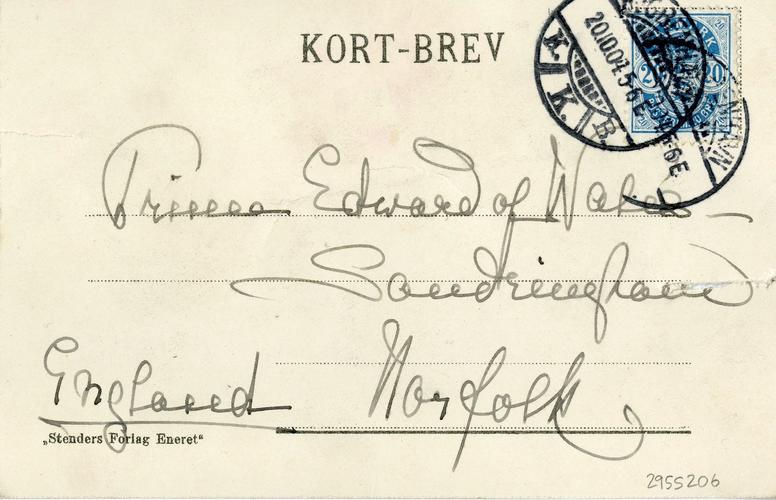 KORT-BREV
K. K. B.
20.10.04. 5-6 E
20 20
Prince Edward of Wales
Sandringham
Norfolk
England
„Stenders Forlag Eneret“
2955206